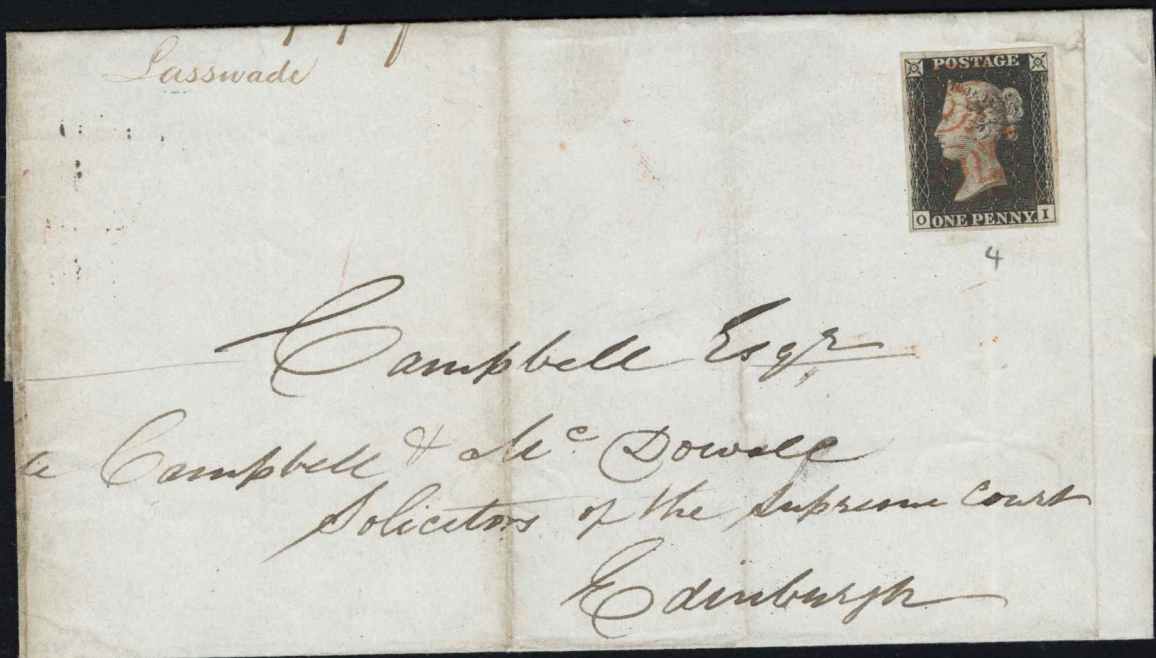 Lasswade
POSTAGE
O ONE PENNY. I
4
Campbell Esqr
Campbell & Mc Dowall
Solicitors of the Supreme Court
Edinburgh